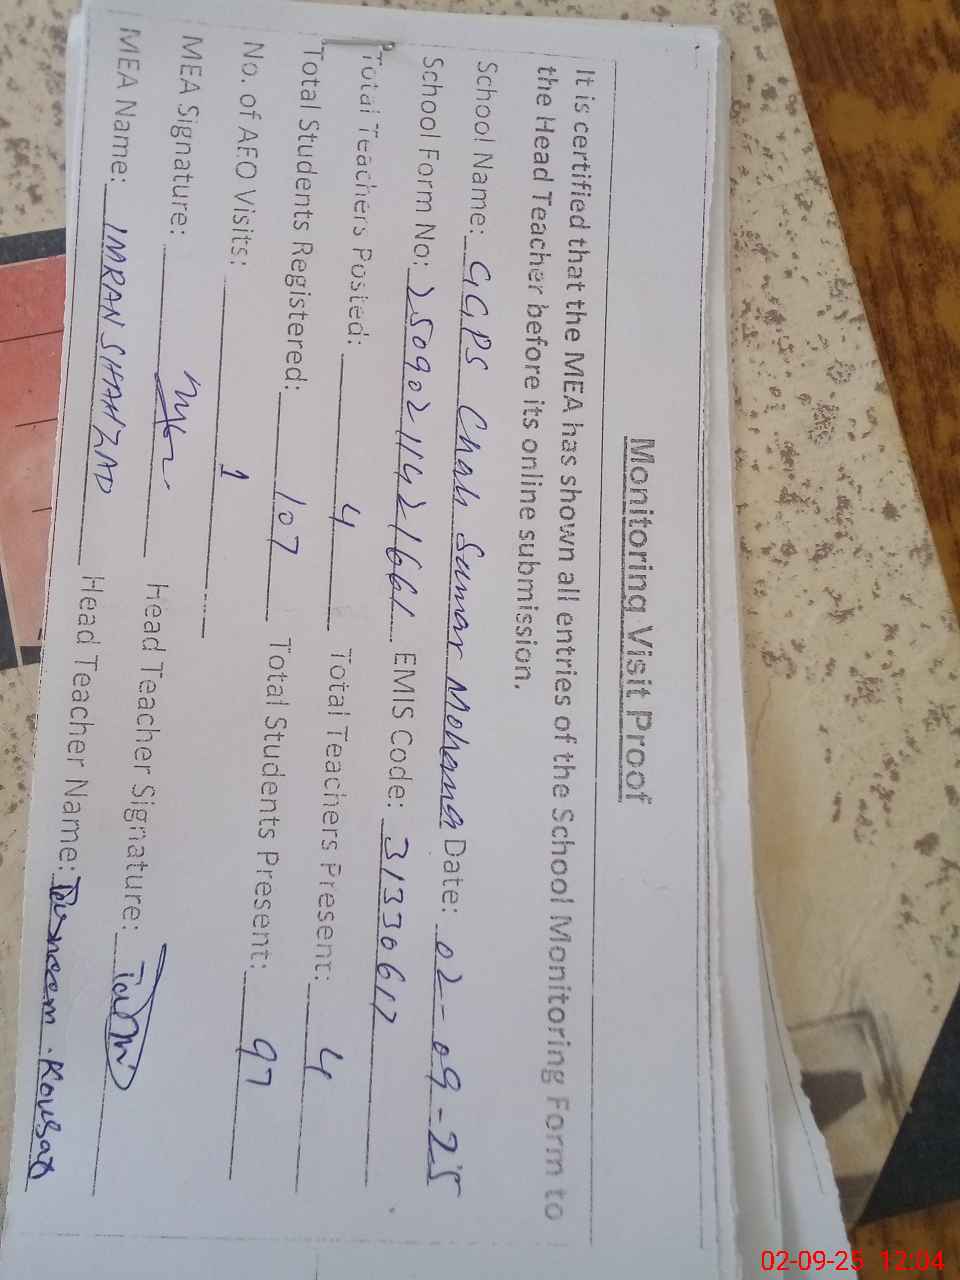 Monitoring Visit Proof
It is certified that the MEA has shown all entries of the School Monitoring Form to
the Head Teacher before its online submission.
School Name: GGPS Chah Sumar Mohana Date: 02-09-25
School Form No: 25090211421661 EMIS Code: 31330617
Total Teachers Posted: 4 Total Teachers Present: 4
Total Students Registered: 107 Total Students Present: 97
No. of AEO Visits: 1
MEA Signature: Head Teacher Signature:
MEA Name: IMRAN SHAHZAD Head Teacher Name: Tasneem. Kousar
02-09-25 12:04